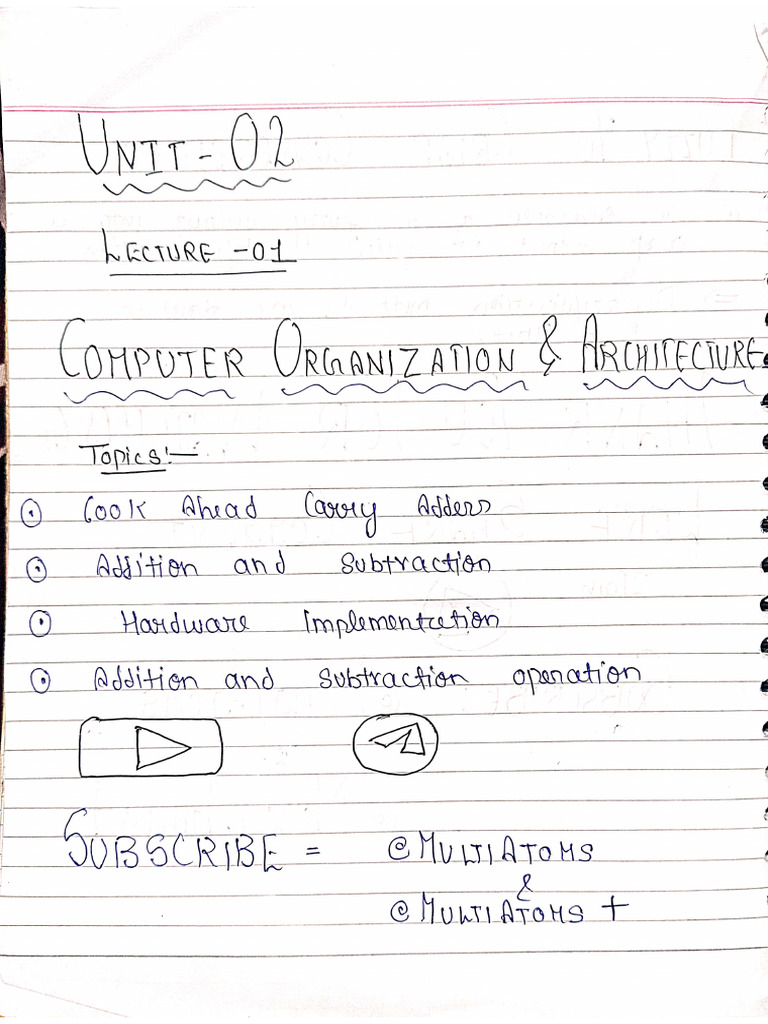 UNIT - 02
LECTURE - 01
COMPUTER ORGANIZATION & ARCHITECTURE
Topics:-
Look Ahead Carry Adders
Addition and Subtraction
Hardware Implementation
Addition and Subtraction operation
SUBSCRIBE = @MULTIATOMS
&
@MULTIATOMS +